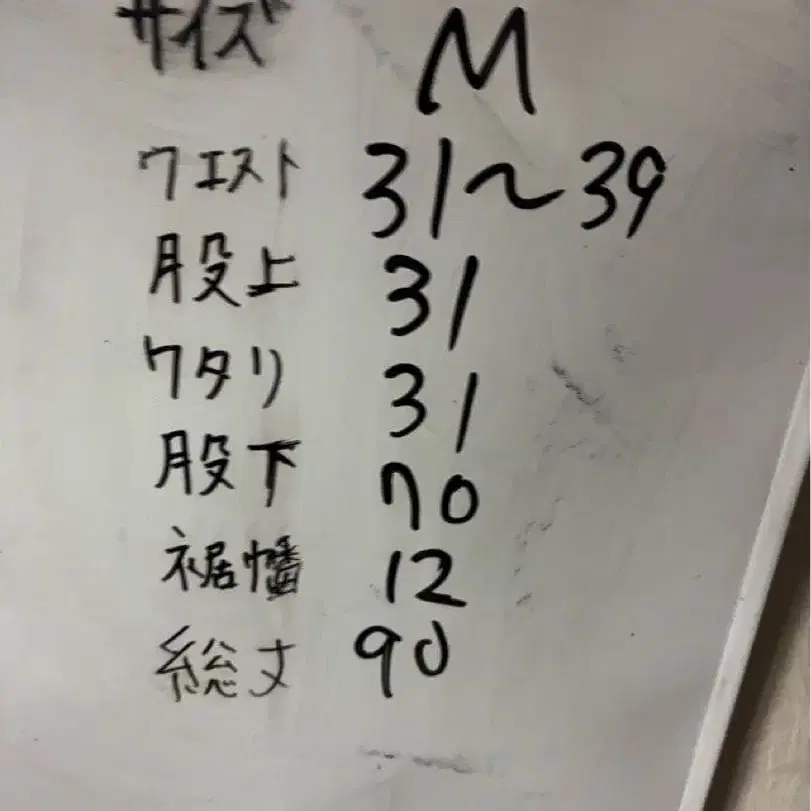 サイズ M
ウエスト 31〜39
股上 31
ワタリ 31
股下 70
裾幅 12
総丈 90